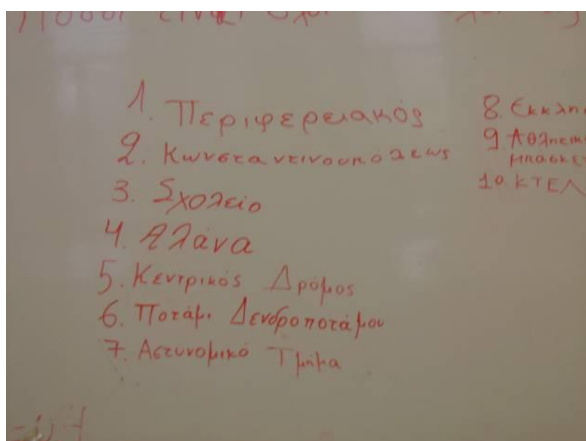 1. Περιφερειακός
2. Κωνσταντινουπόλεως
3. Σχολείο
4. Αλάνα
5. Κεντρικός Δρόμος
6. Ποτάμι Δενδροποτάμου
7. Αστυνομικό Τμήμα
8. Εκκλη
9. Αθλητι
μπασκε
10. ΚΤΕΛ